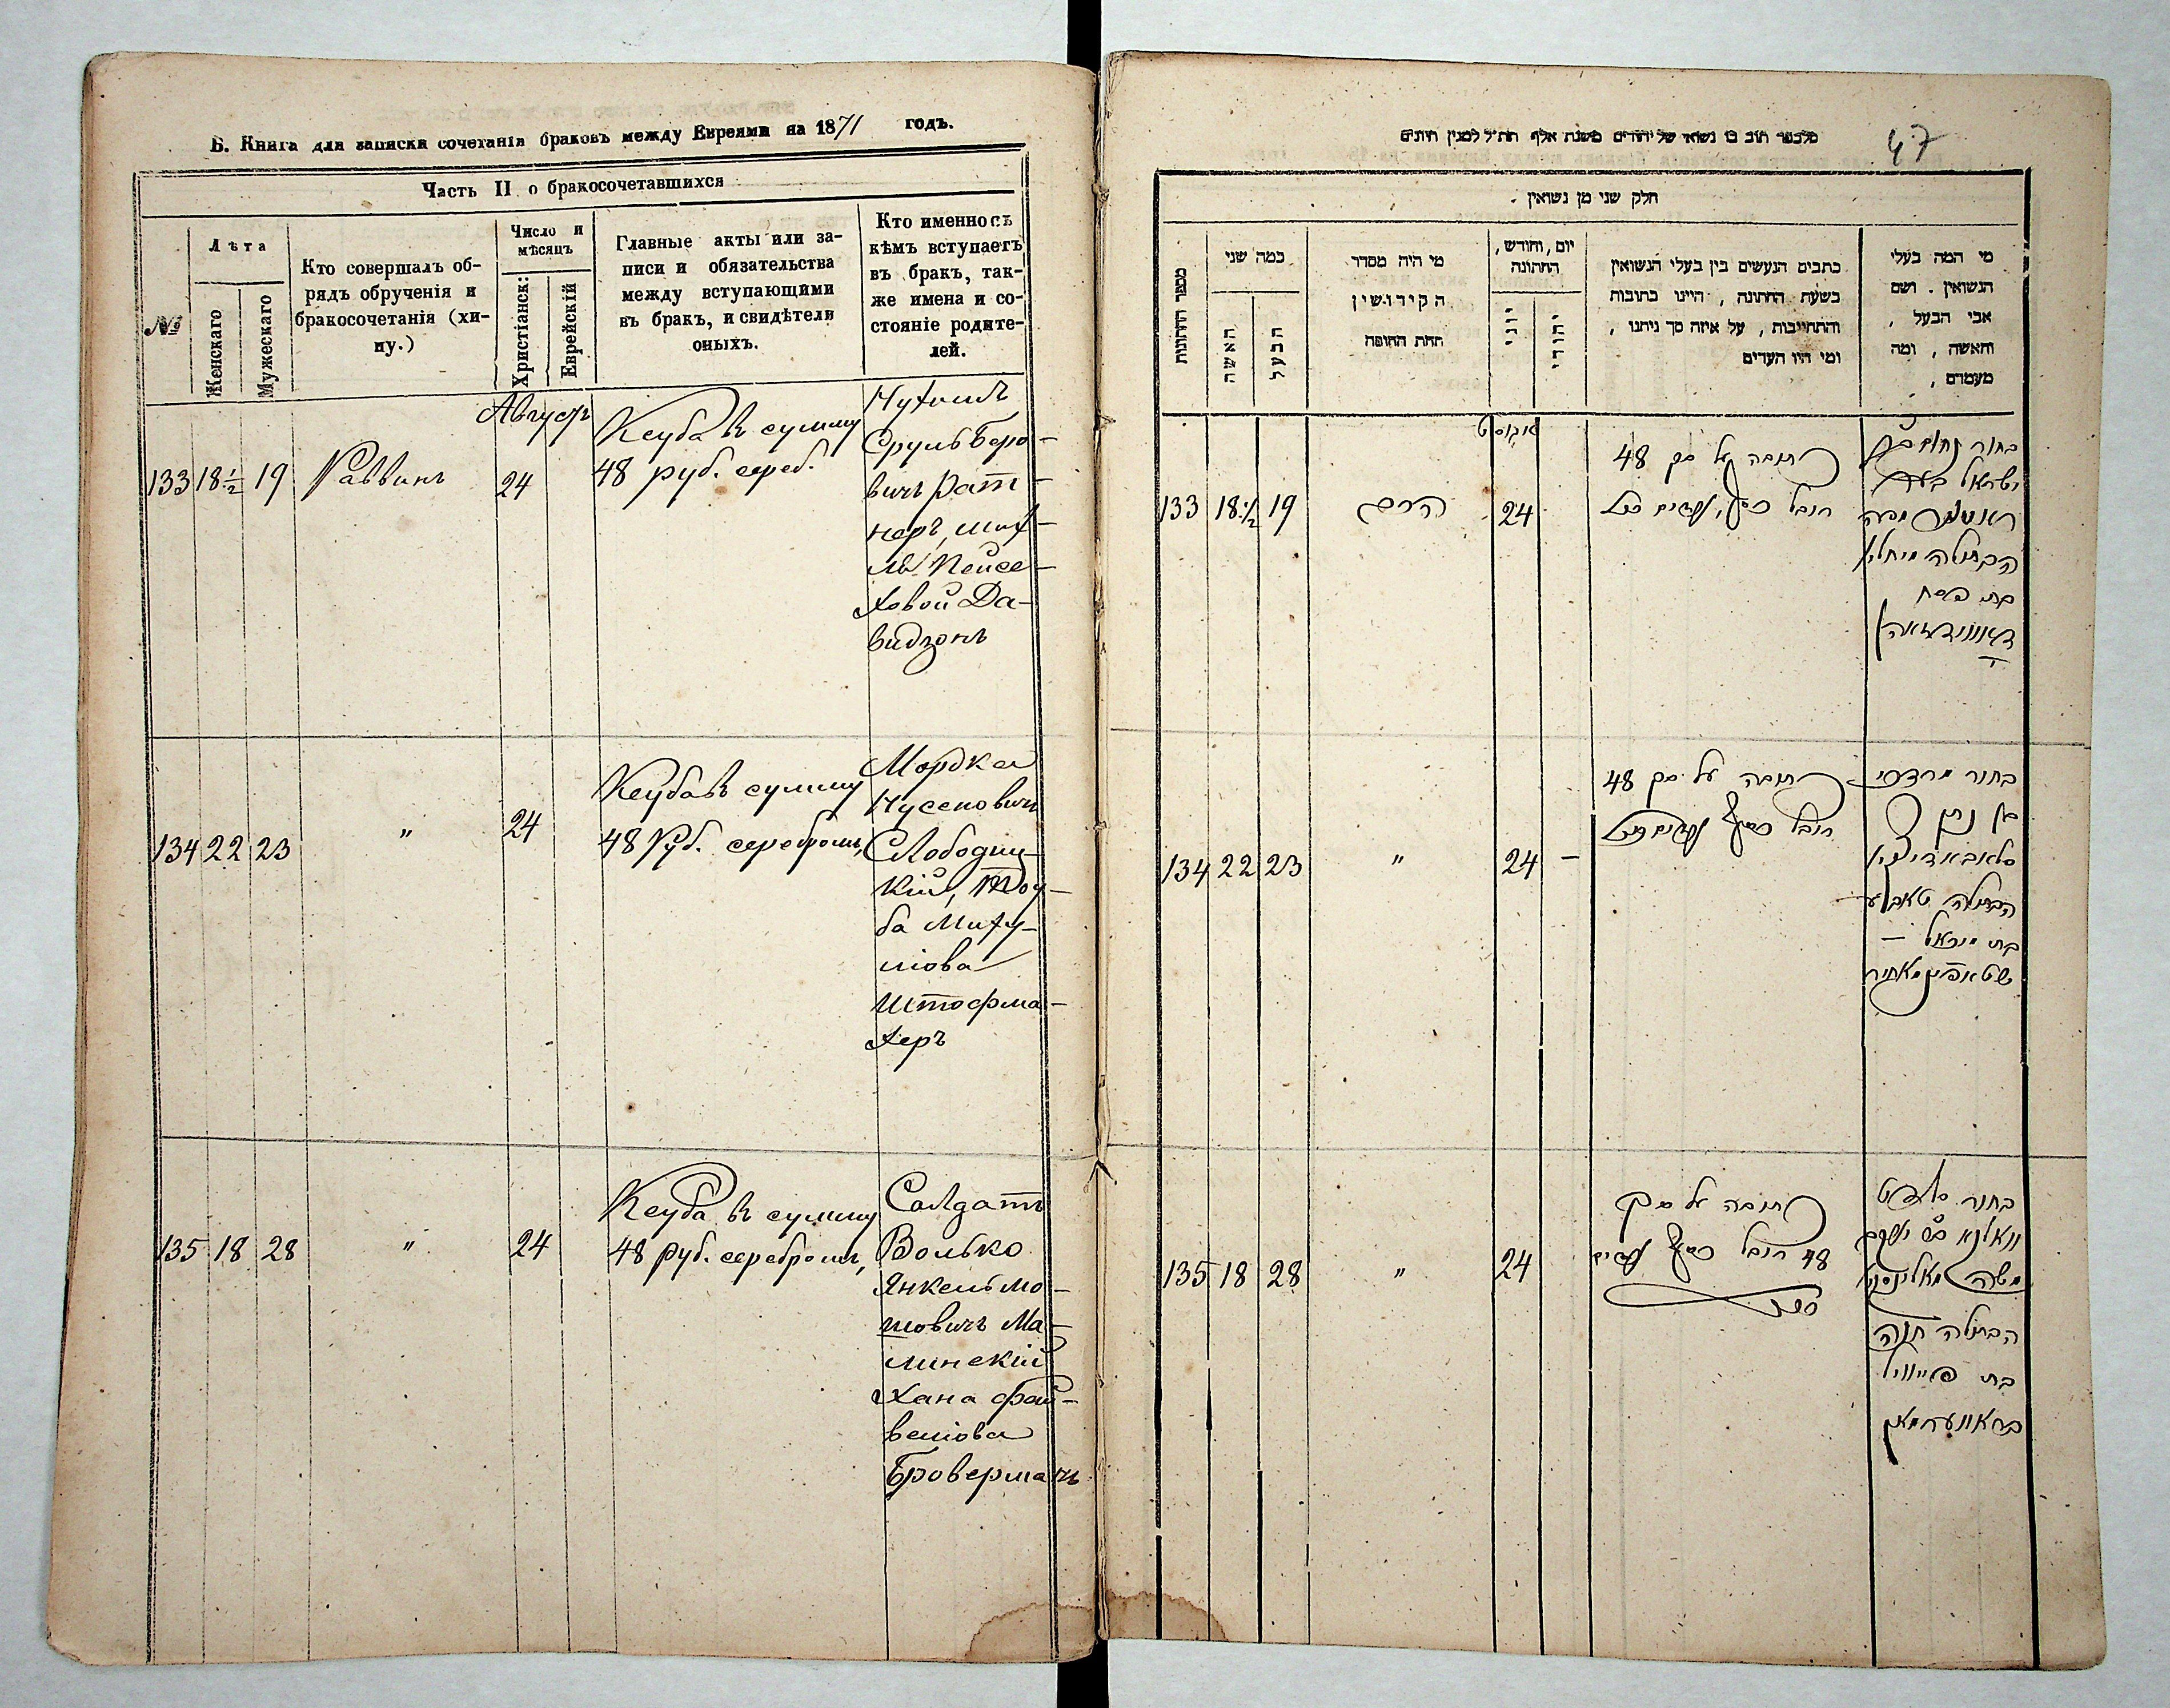 Б. Книга для записки сочетанія браковъ между Евреями на 1871 годъ.
Часть II о бракосочетавшихся
№
Лѣта
Женскаго
Мужескаго
Кто совершалъ об-
рядъ обрученія и
бракосочетанія (хи-
пу.)
Число и
мѣсяцъ
Христіанск:
Еврейскій
Главные акты или за-
писи и обязательства
между вступающими
въ бракъ, и свидѣтели
оныхъ.
Кто именно съ
кѣмъ вступаетъ
въ бракъ, так-
же имена и со-
стояніе родите-
лей.
Августъ
133 18½ 19 Раввинъ 24
Кеуба въ сумму
48 руб. сереб.
Нухимъ
Сруль Беро-
вичъ Рат-
неръ, Мих-
ля Пейсе-
ховой Да-
видзонъ
134 22 23 " 24
Кеуба въ сумму
48 Руб. серебромъ,
Мордка
Нусеновичъ
Слободиц-
кій, Тоу-
ба Миху-
лова
Штофма-
херъ
135 18 28 " 24
Кеуба въ сумму
48 руб. серебромъ,
Салдатъ
Волько
Янкель Мо-
шовичъ Ма-
линскій
Хана Фай-
велюва
Броверманъ
47
חלק שני מן נשואין
מספר החתונות
כמה שני
האשה
הבעל
מי היה מסדר
הקידושין
תחת החופה
יום, וחודש,
החתונה
יוני
יהודי
כתבים הנעשים בין בעלי הנשואין
בשעת החתונה, היינו כתובות
והתחייבות, על איזה סך ניתנו,
ומי היו העדים
מי המה בעלי
הנשואין. ושם
אבי הבעל,
והאשה, ומה
מעמדם,
אוגוסט
133 18½ 19 הרב 24
כתובה על סך 48
רובל כסף,
בחור נחום
ישראל
הבתולה מיחליא
בת פסח
דאווידזאהן
134 22 23 " 24 –
כתובה על סך 48
רובל כסף
בחור מרדכי
בן נתן
סלאבאדיצקי
הבתולה טאבע
בת מיכאל –
שטאפימאחיר
135 18 28 " 24
כתובה על סך
48 רובל כסף
בחור סאלדאט
וואלקא
משה מאלינסקי
הבתולה חנה
בת פייוויל
בראווערמאן